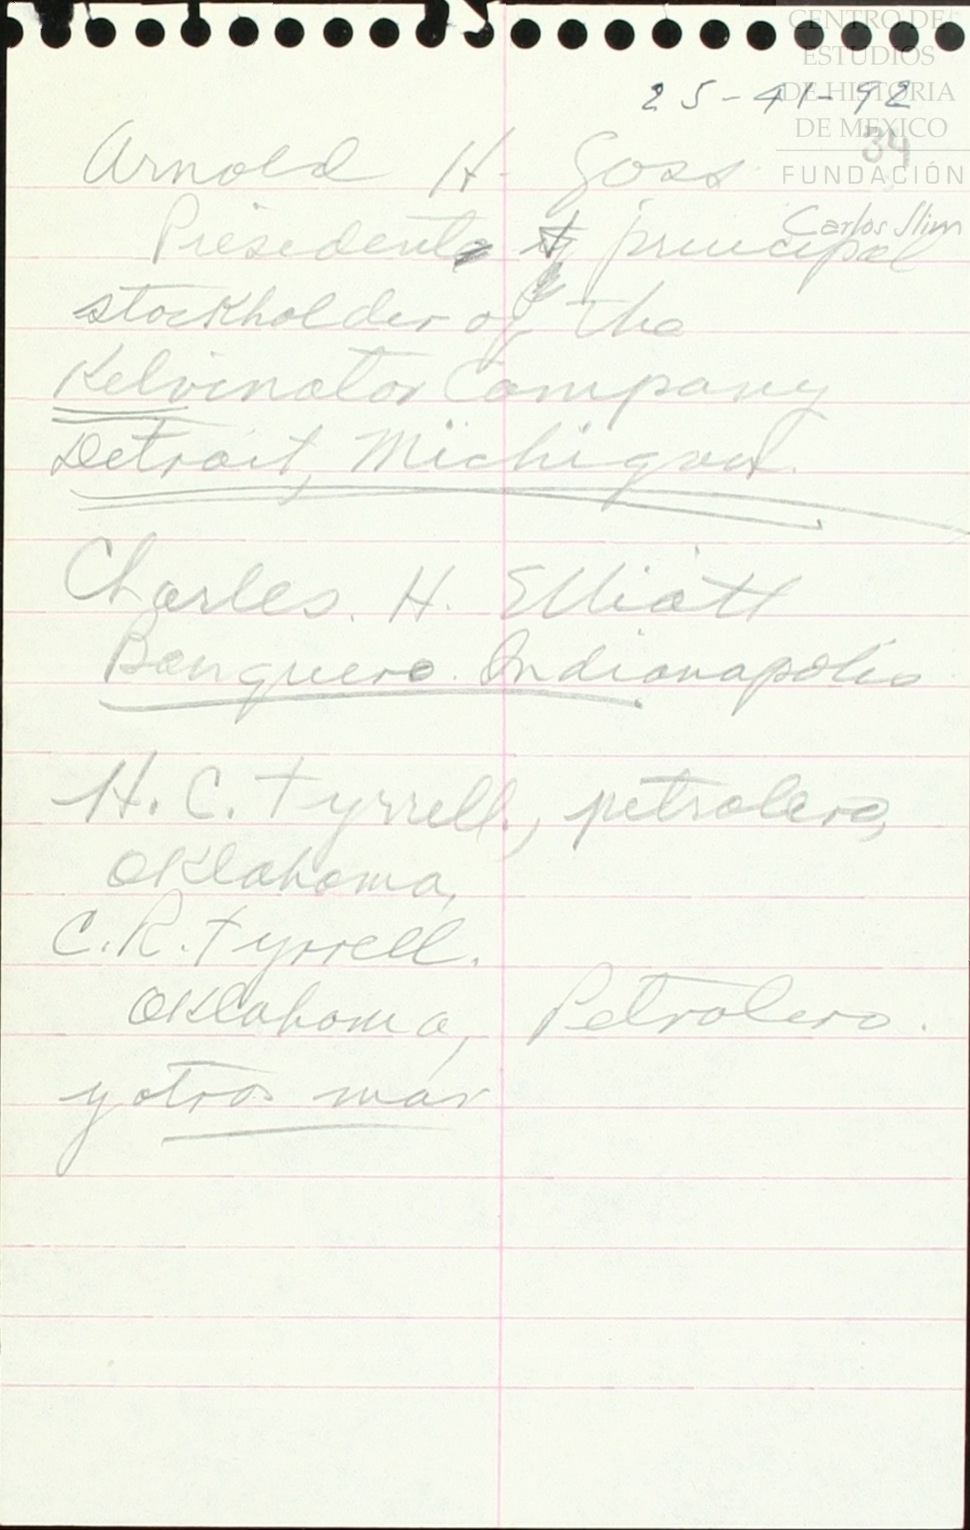 CENTRO DE
ESTUDIOS
DE HISTORIA
DE MEXICO
FUNDACIÓN
Carlos Slim
25-41-92
34
Arnold H. Goss
President & principal
stockholder of the
Kelvinator Company
Detroit, Michigan.
Charles. H. Elliott
Banquero. Indianapolis
H. C. Tyrrell, petrolero,
Oklahoma,
C. R. Tyrrell.
Oklahoma, Petrolero.
y otros más